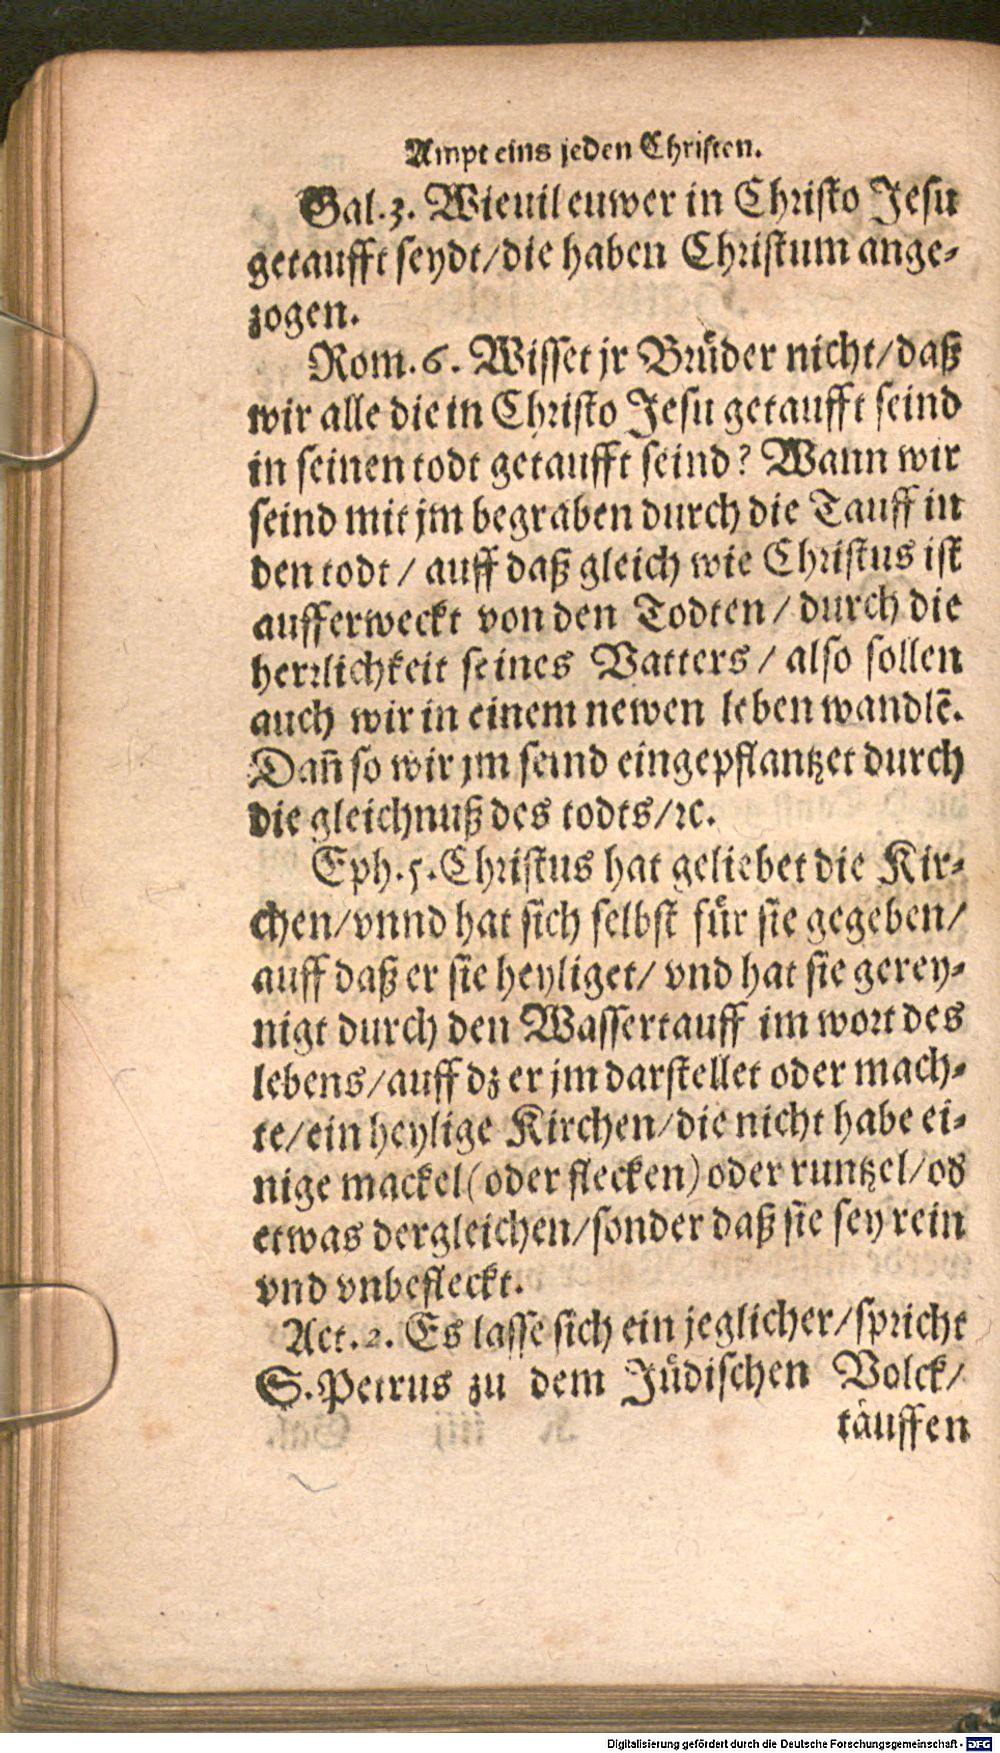 Ampt eins jeden Christen.
Gal. 3. Wieuil euwer in Christo Jesu
getaufft seydt/die haben Christum ange-
zogen.
Rom. 6. Wisset jr Brůder nicht/daß
wir alle die in Christo Jesu getaufft seind
in seinen todt getaufft seind? Wann wir
seind mit jm begraben durch die Tauff in
den todt / auff daß gleich wie Christus ist
aufferweckt von den Todten / durch die
herrlichkeit seines Vatters / also sollen
auch wir in einem newen leben wandlē.
Dañ so wir jm seind eingepflantzet durch
die gleichnuß des todts/ꝛc.
Eph. 5. Christus hat geliebet die Kir-
chen/vnnd hat sich selbst fůr sie gegeben/
auff daß er sie heyliget/ vnd hat sie gerey-
nigt durch den Wassertauff im wort des
lebens/auff dz er jm darstellet oder mach-
te/ein heylige Kirchen/die nicht habe ei-
nige mackel (oder flecken) oder runtzel/oš
etwas dergleichen/sonder daß sie sey rein
vnd vnbefleckt.
Act. 2. Es lasse sich ein jeglicher/spricht
S. Petrus zu dem Jůdischen Volck/
täuffen
Digitalisierung gefördert durch die Deutsche Forschungsgemeinschaft - DFG